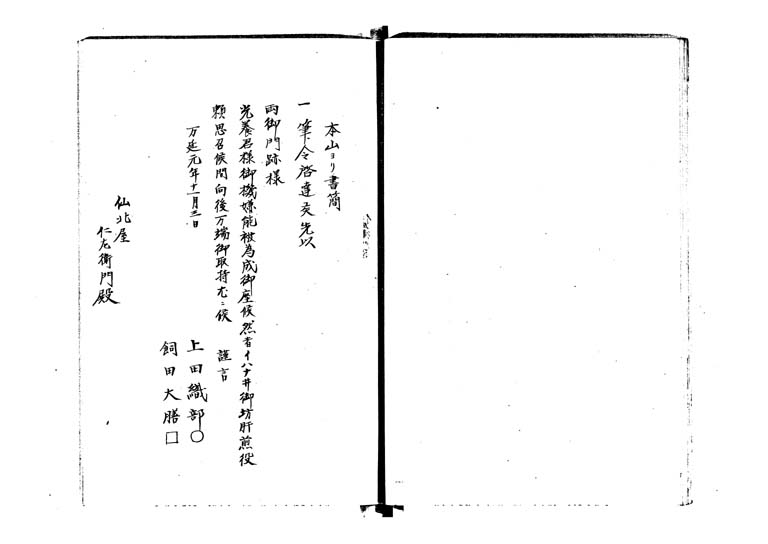 本山ヨリ書簡
一筆令啓達候先以
両御門跡様
光養君様御機嫌能被為成御座候然者イハナ井御坊肝煎役
頼思召候間向後万端御取持尤ニ候　謹言
万延元年十一月三日
上田織部〇
飼田大膳□
仙北屋
仁左衛門殿